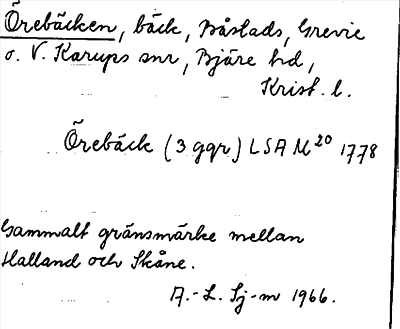 Örebäcken, bäck, Båstads, Grevie
o. V. Karups snr, Bjäre hd,
Krist. l.
Örebäck (3 ggr) LSA M 20 1778
Gammalt gränsmärke mellan
Halland och Skåne.
A.-L. Sj-m 1966.